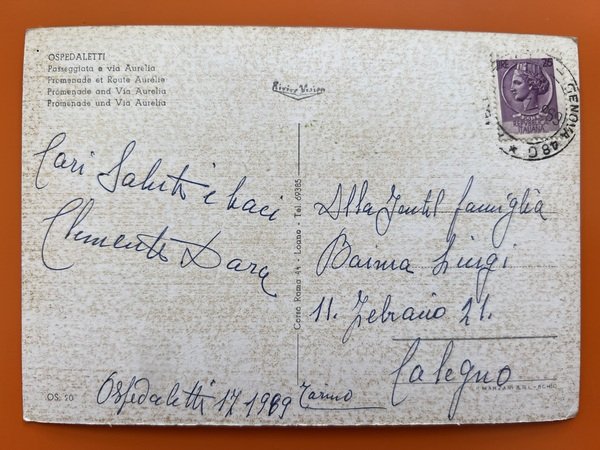 OSPEDALETTI
Passeggiata e via Aurelia
Promenade et Route Aurélie
Promenade and Via Aurelia
Promenade und Via Aurelia
Rivira Vision
GENOVA
REPUBBLICA
ITALIANA
Cari Saluti i baci
Clemente Dara
Corso Roma 44 - Loano - Tel. 69385
Alla Gentil famiglia
Baima Luigi
11. Febraio 21.
Calegno
Torino
Ospedaletti 17 1969
OS. 20